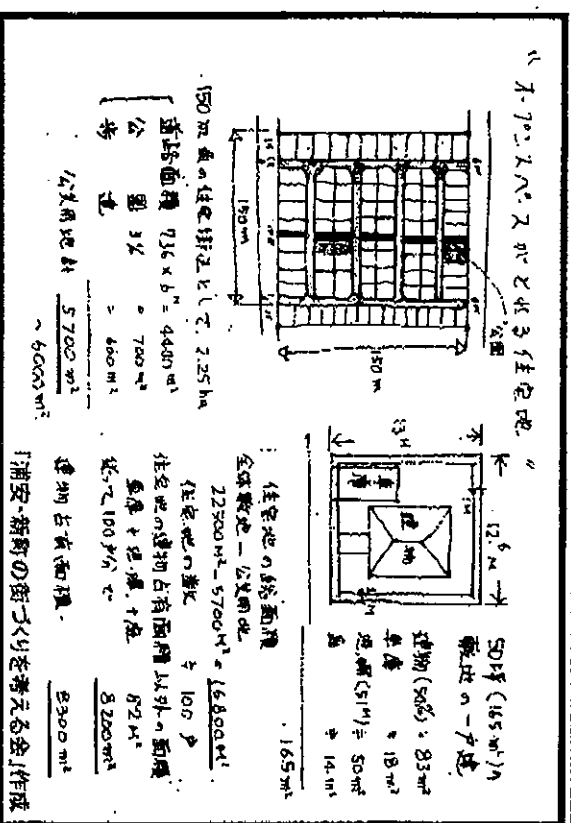 "オープンスペースがとれる住宅地"
公園
150m
150m
150m角の住宅街区として、2.25ha
道路面積 736×6m = 4400m²
公園 3% = 700m²
歩道 = 600m²
公共用地計 5700m²
~6000m²
50坪(165m²)の
敷地の一戸建
建物(50%) = 83m²
車庫 = 18m²
庭 = 14m²
165m²
13M
12.6M
車庫
建物
住宅地の総面積
全体敷地 - 公共用地
22500m² - 5700m² = 16800m²
住宅地の数 ≒ 100戸
住宅地の建物占有面積以外の面積
82m²
従って100戸分で
8200m²
建物占有面積
8300m²
「浦安・新町の街づくりを考える会」作成